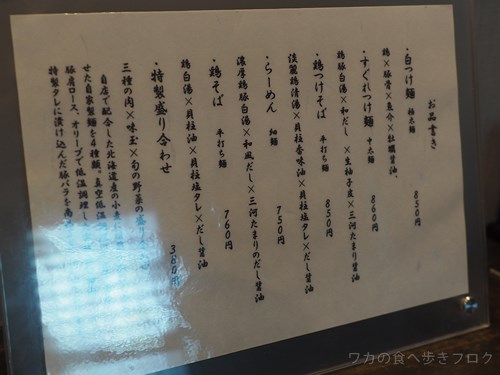 お品書き
・白つけ麺 極太麺 850円
鶏×豚骨×魚介×牡蠣醤油、
・すぐれつけ麺 中太麺 860円
鶏豚白湯×和だし×生柚子皮×三河たまりだし醤油
・鶏つけそば 平打ち麺 850円
淡麗鶏清湯×貝柱香味油×貝柱塩タレ×だし醤油
・らーめん 細麺 750円
濃厚鶏豚白湯×和風だし×三河たまりのだし醤油
・鶏そば 平打ち麺 760円
鶏白湯×貝柱油×貝柱塩タレ×だし醤油
・特製盛り合わせ 360円
三種の肉×味玉×旬の野菜の
自店で配合した北海道産の小麦
せた自家製麺を4種類。真空低温調
豚肩ロース、オリーブで低温調理し
特製タレに漬け込んだ豚バラを
ワカの食べ歩きブログ